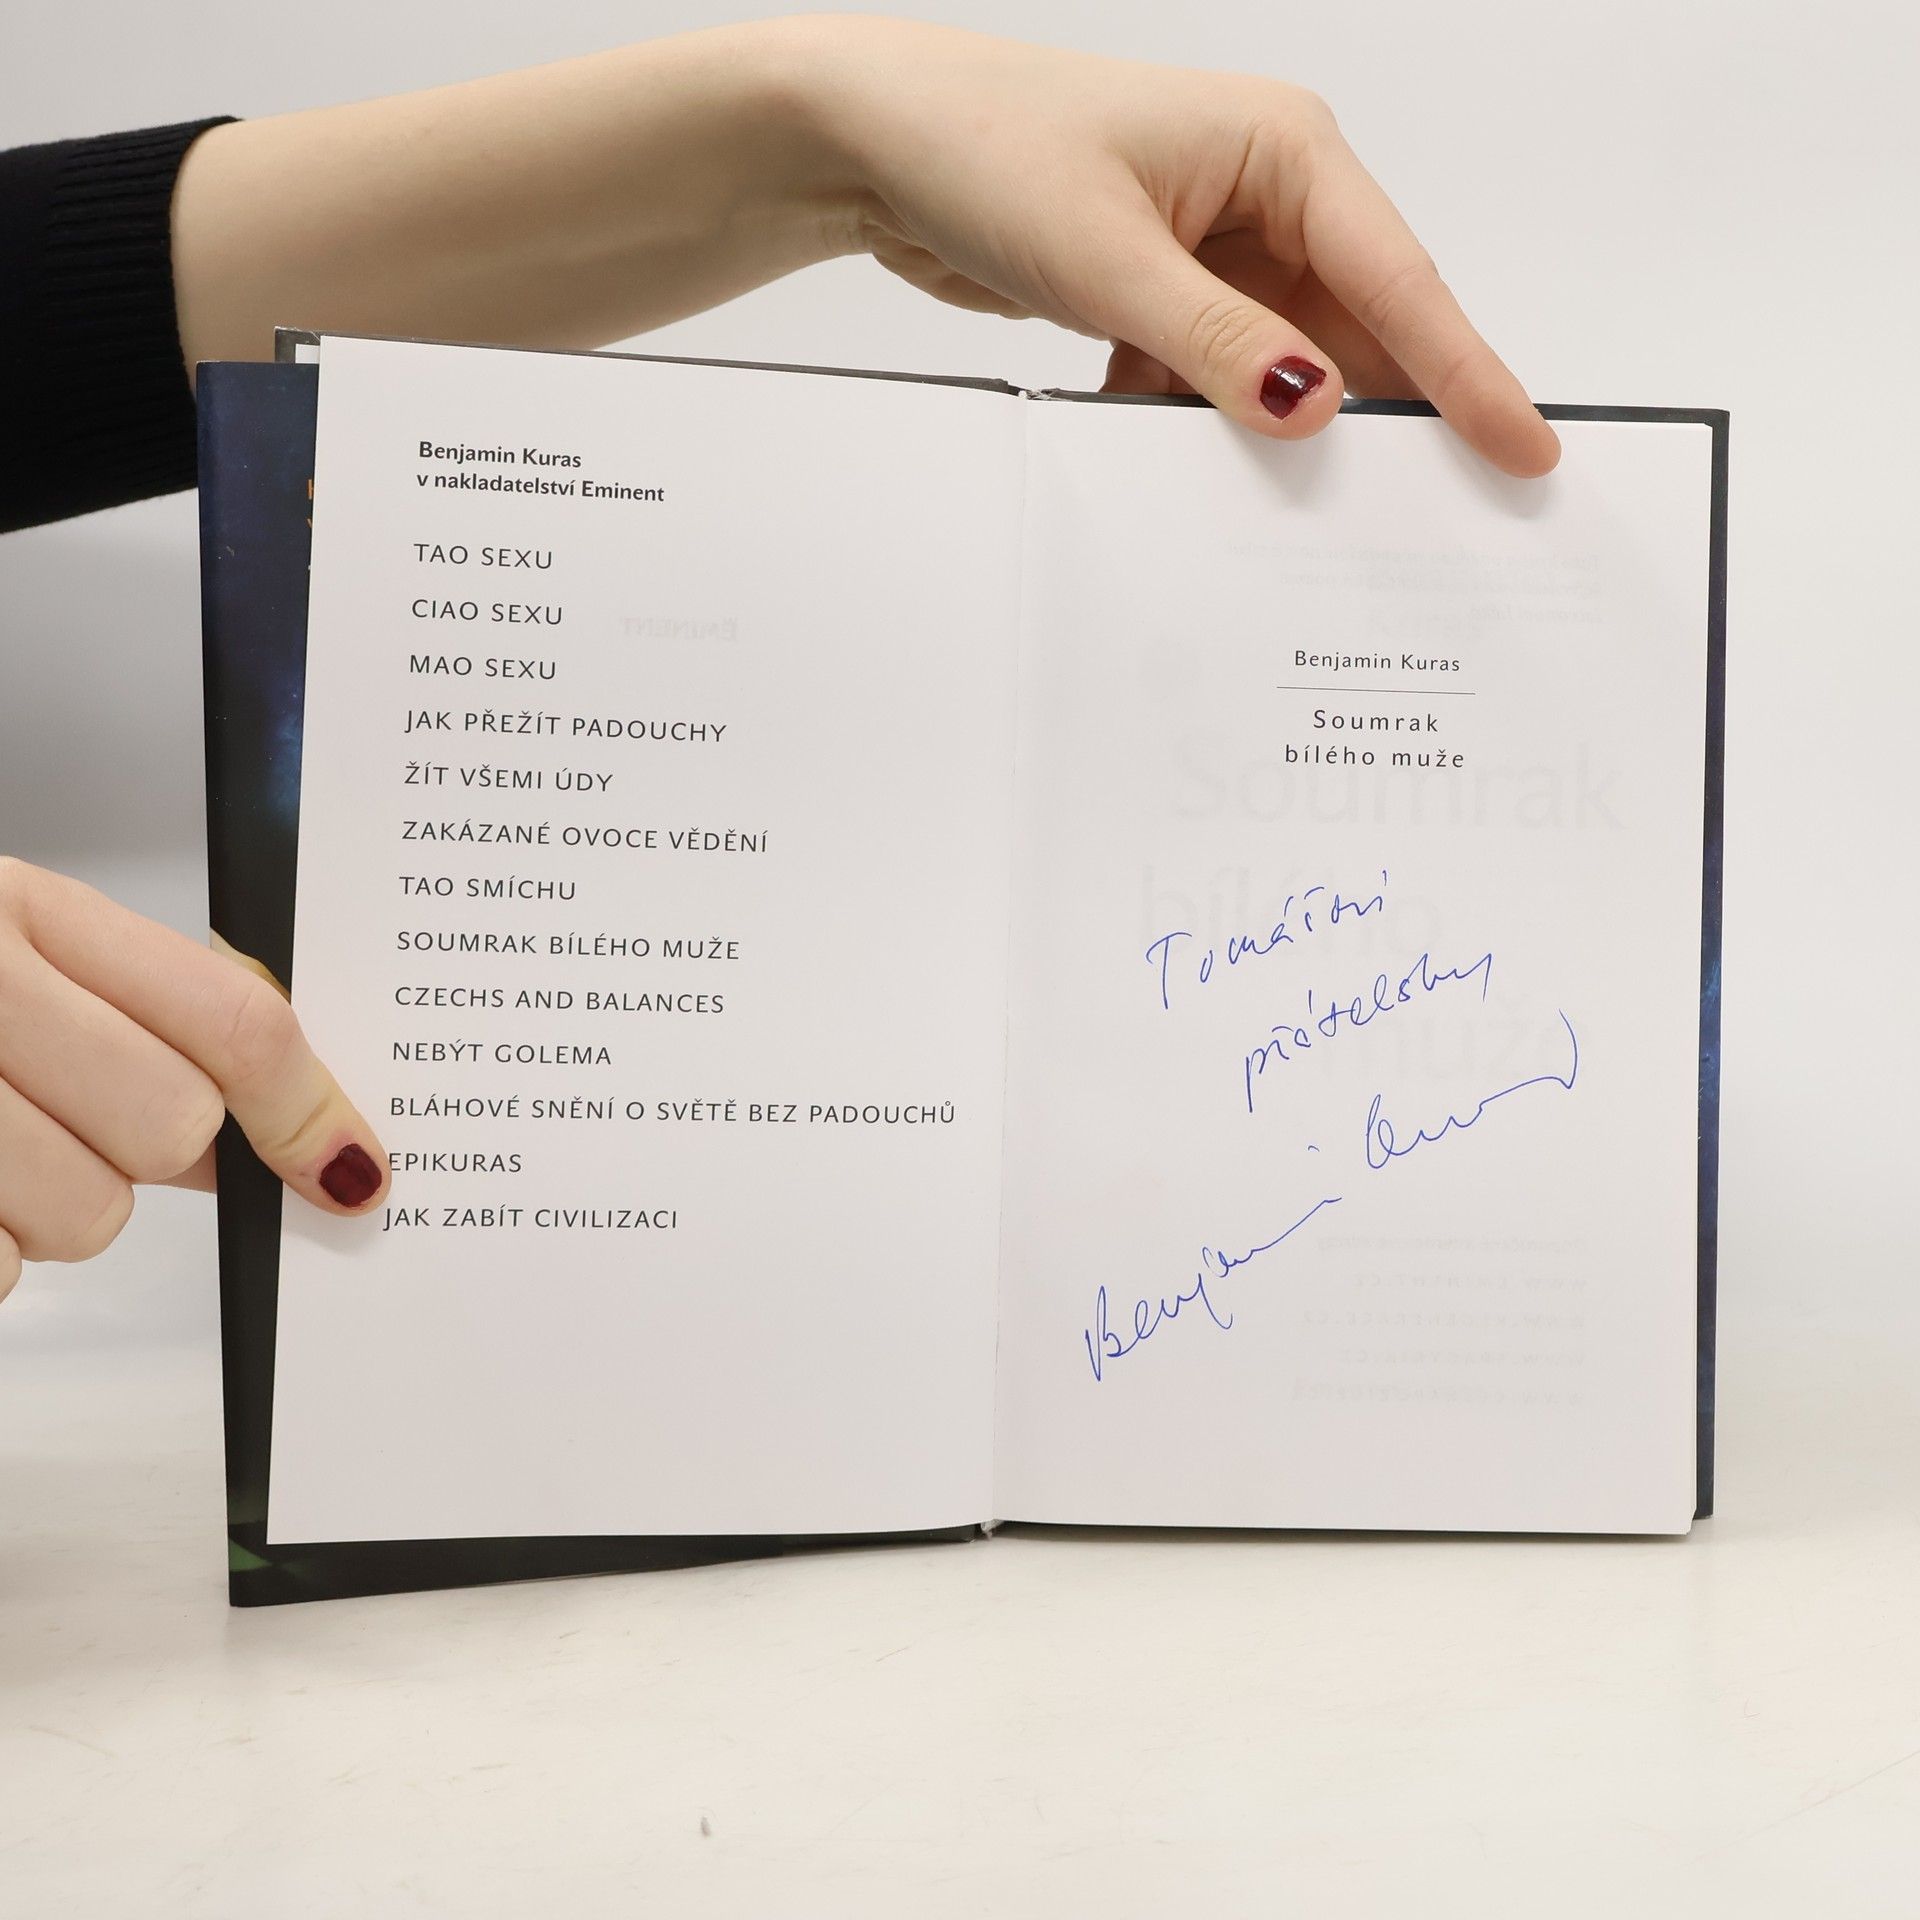 Benjamin Kuras
v nakladatelství Eminent
TAO SEXU
CIAO SEXU
MAO SEXU
JAK PŘEŽÍT PADOUCHY
ŽÍT VŠEMI ÚDY
ZAKÁZANÉ OVOCE VĚDĚNÍ
TAO SMÍCHU
SOUMRAK BÍLÉHO MUŽE
CZECHS AND BALANCES
NEBÝT GOLEMA
BLÁHOVÉ SNĚNÍ O SVĚTĚ BEZ PADOUCHŮ
EPIKURAS
JAK ZABÍT CIVILIZACI
EMINENT
Benjamin Kuras
Soumrak
bílého muže
Soumrak
bílého
muže
Tomášovi
přátelsky
Benjamin Kuras